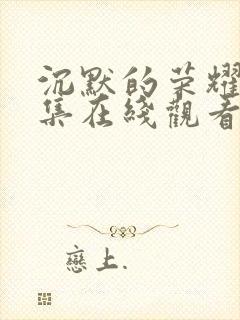 沉默的荣耀
集在綫觀看
戀上.